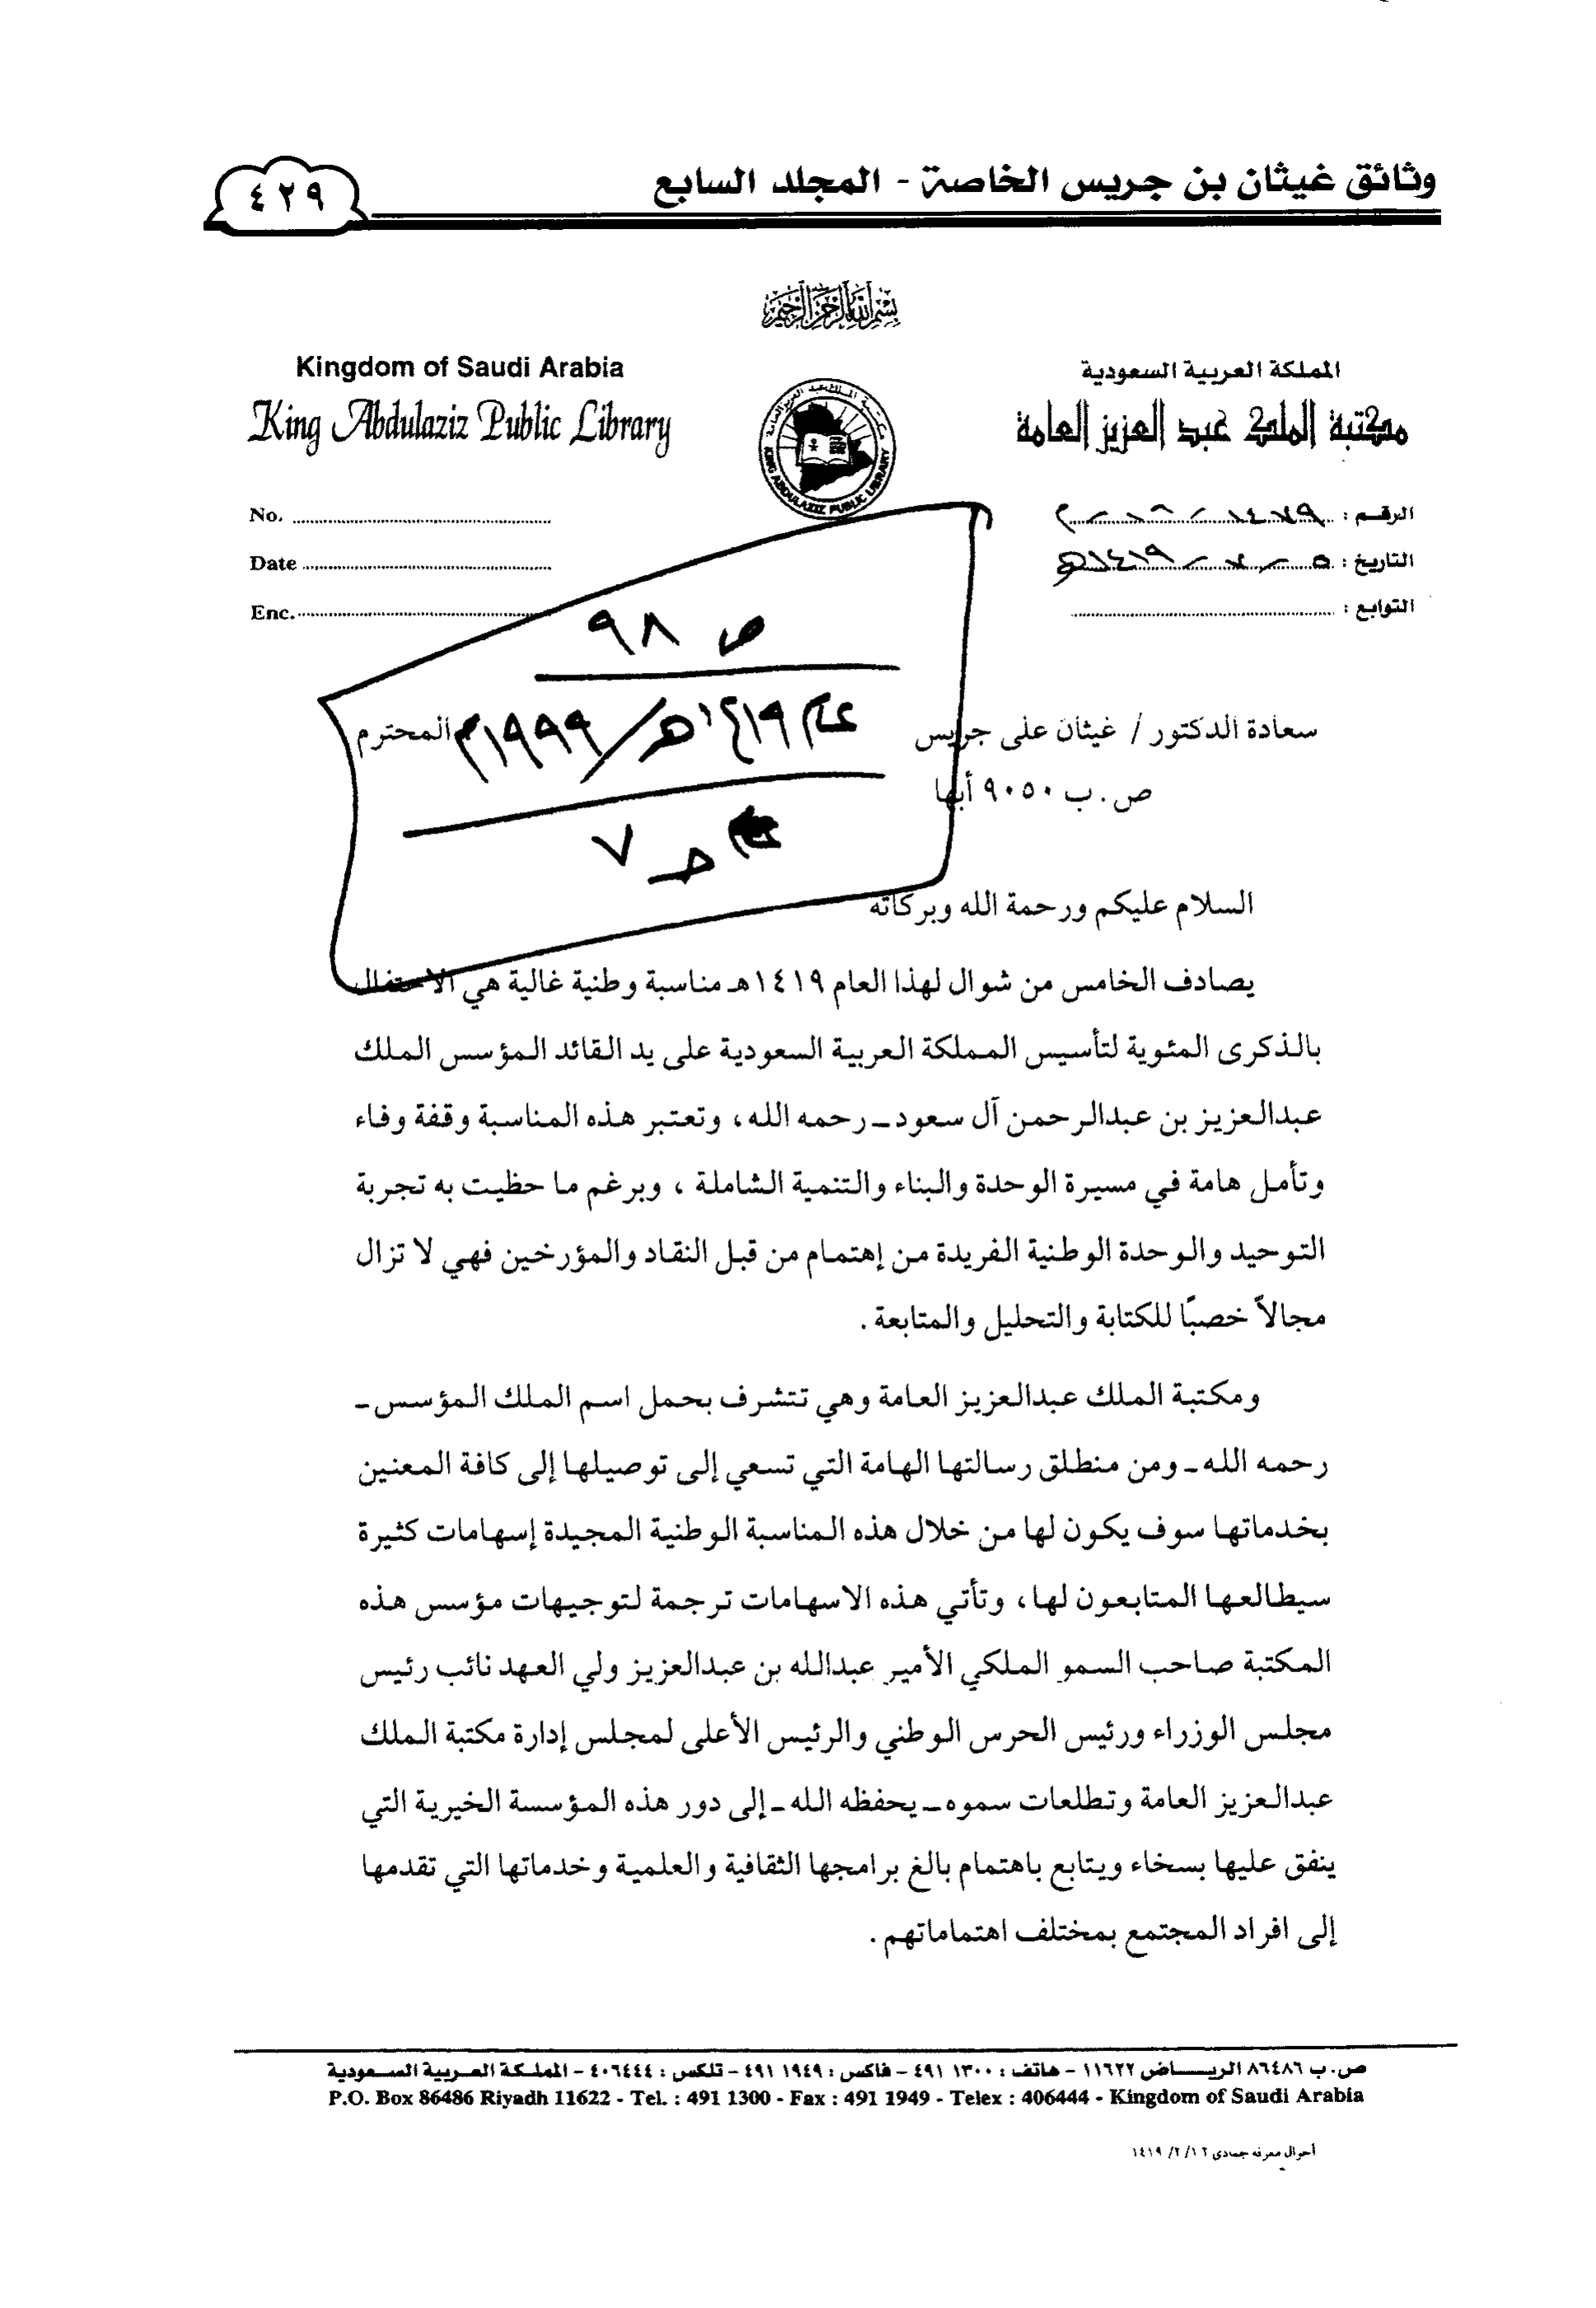 وثائق غيثان بن جريس الخاصة - المجلد السابع
٤٢٩
بسم الله الرحمن الرحيم
المملكة العربية السعودية
مكتبة الملك عبد العزيز العامة
Kingdom of Saudi Arabia
King Abdulaziz Public Library
KING ABDULAZIZ PUBLIC LIBRARY
الرقم :
التاريخ : ١٤١٩هـ
التوابع :
No.
Date
Enc.
ص ٩٨
عام ١٤١٩هـ/١٩٩٩م
حـ ٧
سعادة الدكتور / غيثان على جريس المحترم
ص . ب ٩٠٥٠ أبها
السلام عليكم ورحمة الله وبركاته
يصادف الخامس من شوال لهذا العام ١٤١٩هـ مناسبة وطنية غالية هي الاحتفال
بالذكرى المئوية لتأسيس المملكة العربية السعودية على يد القائد المؤسس الملك
عبدالعزيز بن عبدالرحمن آل سعود ـ رحمه الله ، وتعتبر هذه المناسبة وقفة وفاء
وتأمل هامة في مسيرة الوحدة والبناء والتنمية الشاملة ، وبرغم ما حظيت به تجربة
التوحيد والوحدة الوطنية الفريدة من إهتمام من قبل النقاد والمؤرخين فهي لا تزال
مجالاً خصبًا للكتابة والتحليل والمتابعة .
ومكتبة الملك عبدالعزيز العامة وهي تتشرف بحمل اسم الملك المؤسس ـ
رحمه الله ـ ومن منطلق رسالتها الهامة التي تسعي إلى توصيلها إلى كافة المعنين
بخدماتها سوف يكون لها من خلال هذه المناسبة الوطنية المجيدة إسهامات كثيرة
سيطالعها المتابعون لها ، وتأتي هذه الاسهامات ترجمة لتوجيهات مؤسس هذه
المكتبة صاحب السمو الملكي الأمير عبدالله بن عبدالعزيز ولي العهد نائب رئيس
مجلس الوزراء ورئيس الحرس الوطني والرئيس الأعلى لمجلس إدارة مكتبة الملك
عبدالعزيز العامة وتطلعات سموه ـ يحفظه الله ـ إلى دور هذه المؤسسة الخيرية التي
ينفق عليها بسخاء ويتابع باهتمام بالغ برامجها الثقافية والعلمية وخدماتها التي تقدمها
إلى افراد المجتمع بمختلف اهتماماتهم .
ص . ب ٨٦٤٨٦ الريـــاض ١١٦٢٢ - هاتف : ١٣٠٠ ٤٩١ - فاكس : ١٩٤٩ ٤٩١ - تلكس : ٤٠٦٤٤٤ - المملكة العربية السعودية
P.O. Box 86486 Riyadh 11622 - Tel. : 491 1300 - Fax : 491 1949 - Telex : 406444 - Kingdom of Saudi Arabia